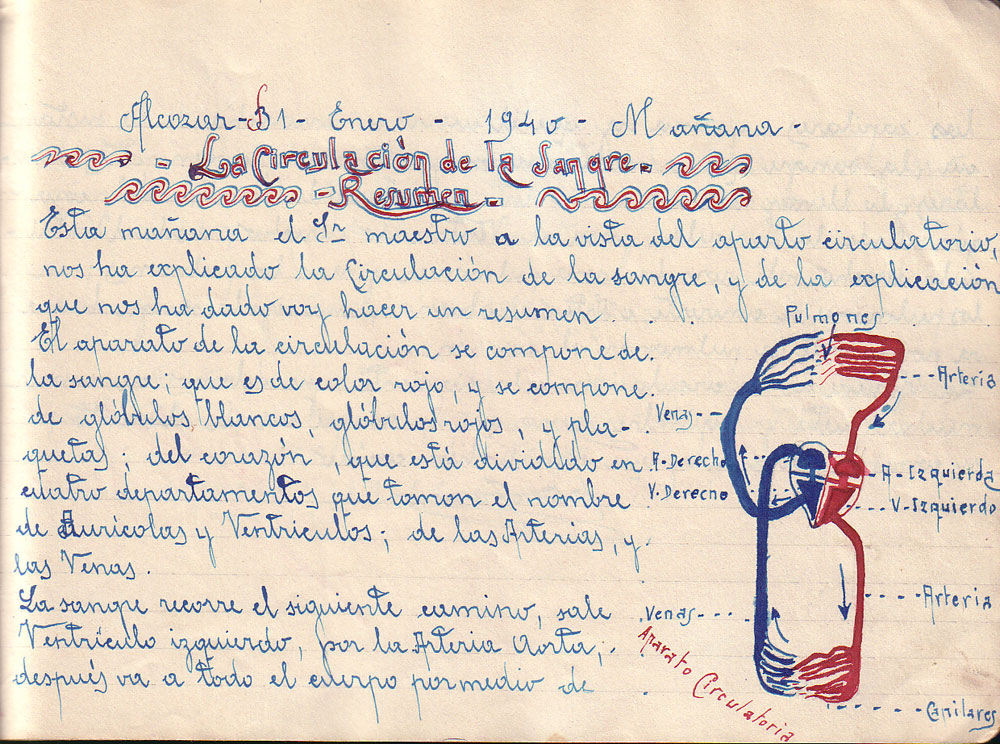 Alcozar-31- Enero - 1940 - Mañana -
- La Circulación de la Sangre -
- Resumen -
Esta mañana el Sr maestro a la vista del aparto circulatorio,
nos ha explicado la Circulación de la sangre, y de la explicación
que nos ha dado voy hacer un resumen
El aparato de la circulación se compone de
la sangre; que es de color rojo, y se compone
de glóbulos blancos, glóbulos rojos, y pla-
quetas; del corazón, que está dividido en
cuatro departamentos que tomon el nombre
de Aurícolas y Ventriculos; de las Arterias, y
las Venas.
La sangre recorre el siguiente camino, sale
Ventrículo izquierdo, por la Arteria Aorta;
después va a todo el cuerpo por medio de
Pulmones
Arteria
Venas
A-Derecho
V-Derecho
A-Izquierda
V-Izquierdo
Arteria
Venas
Aparato Circulatoria
Capilares